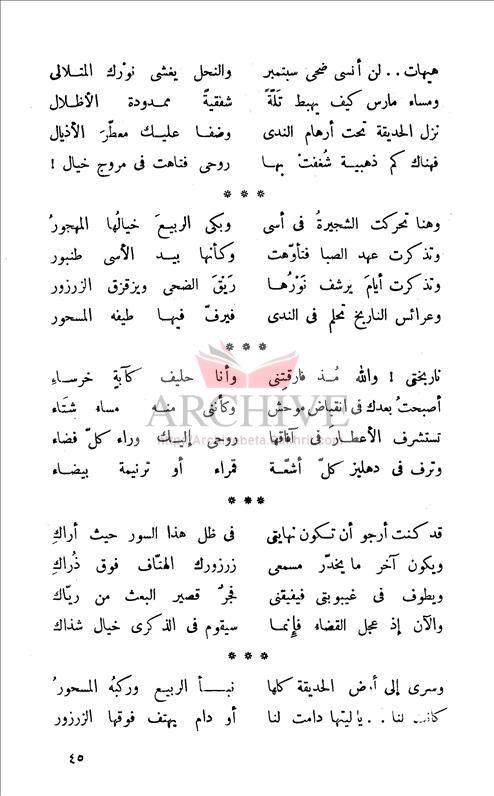 هيهات . . لن أنسى ضحى سبتمبر والنحل يغشى نوْرك المتلالى
ومساء مارس كيف يهبط تَلّةً شفقيةً ممدودة الأظلال
نزل الحديقة تحت أرهام الندى وضفا عليك معطّرَ الأذيال
فهناك كم ذهبية شُغفتْ بها روحى فتاهت فى مروج خيال !
* * *
وهنا تحركت الشجيرةُ فى أسى وبكى الربيعَ خيالُها المهجورُ
وتذكرت عهد الصبا فتأوّهت وكأنها بيد الأسى طنبور
وتذكرت أيامَ يرشف نَوْرُها رَيْقَ الضحى ويزقزق الزرزور
وعرائس النارنج تحلم فى الندى فيرفّ فيها طيفه المسحور
* * *
نارنجتى ! والله مُذ فارقتِنى وأنا حليف كآبةٍ خرساءِ
أصبحتُ بعدك فى انقباض موحش وكأننى منه مساء شتاء
تستشرف الأعطارَ فى آفاقها روحى إليك وراء كلّ فضاء
وترف فى دهليز كلّ أشعّة قمراء أو ترنيمة بيضاء
ARCHIVE
* * *
قد كنت أرجو أن تكون نهايتى فى ظل هذا السور حيث أراكِ
ويكون آخر ما يخدّر مسمعى زرزورك الهتّاف فوق ذُراكِ
ويطوف فى غيبوبتى فيفيقنى فجرٌ قصير البعث من ريّاك
والآن إذ عجل القضاء فإنما سيقوم فى الذكرى خيال شذاك
* * *
وسرى إلى أرض الحديقة كلها نبأ الربيع وركبُه المسحورُ
كانت لنا . . يا ليتها دامت لنا أو دام يهتف فوقها الزرزور
٤٥